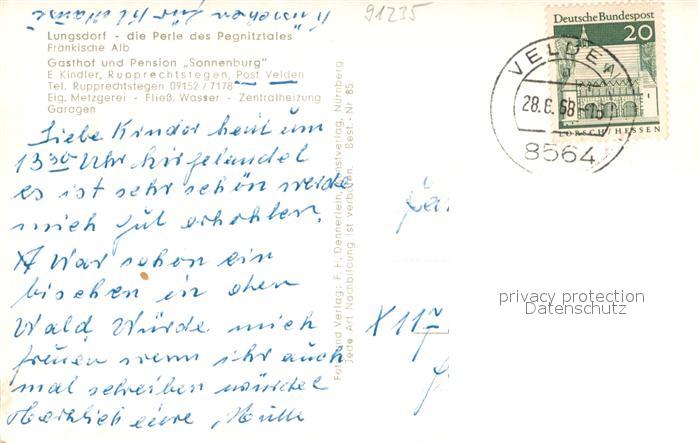 Küsschen für Klklaus
91235
Lungsdorf - die Perle des Pegnitztales
Fränkische Alb
Gasthof und Pension „Sonnenburg"
E Kindler, Rupprechtstegen, Post Velden
Tel. Rupprechtstegen 09152 / 7178
Eig. Metzgerei - Fließ. Wasser - Zentralheizung
Garagen
Liebe Kinder heut um
13 30 Uhr hir gelandet
es ist sehr schön werde
mich gut erhohlen.
War schon ein
bischen in den
Wald Würde mich
freuen wenn ihr auch
mal schreiben würdet
Herzlich eure Mutti
Foto und Verlag: F. H. Dennerlein, Kunstverlag, Nürnberg
Jede Art Nachbildung ist verboten. Best.-Nr. 85
Deutsche Bundespost
20
LORSCH/HESSEN
VELDEN
28.6.68-18
8564
X 117
privacy protection
Datenschutz